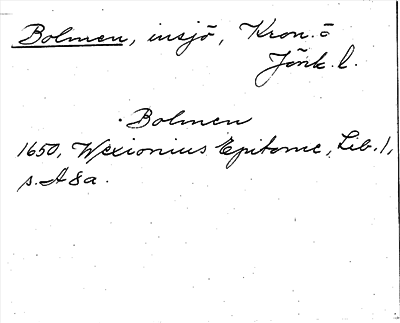 Bolmen, insjö, Kron. o
Jönk. l.
Bolmen
1650, Wexionius Epitome, Lib. 1,
s. A 8a.